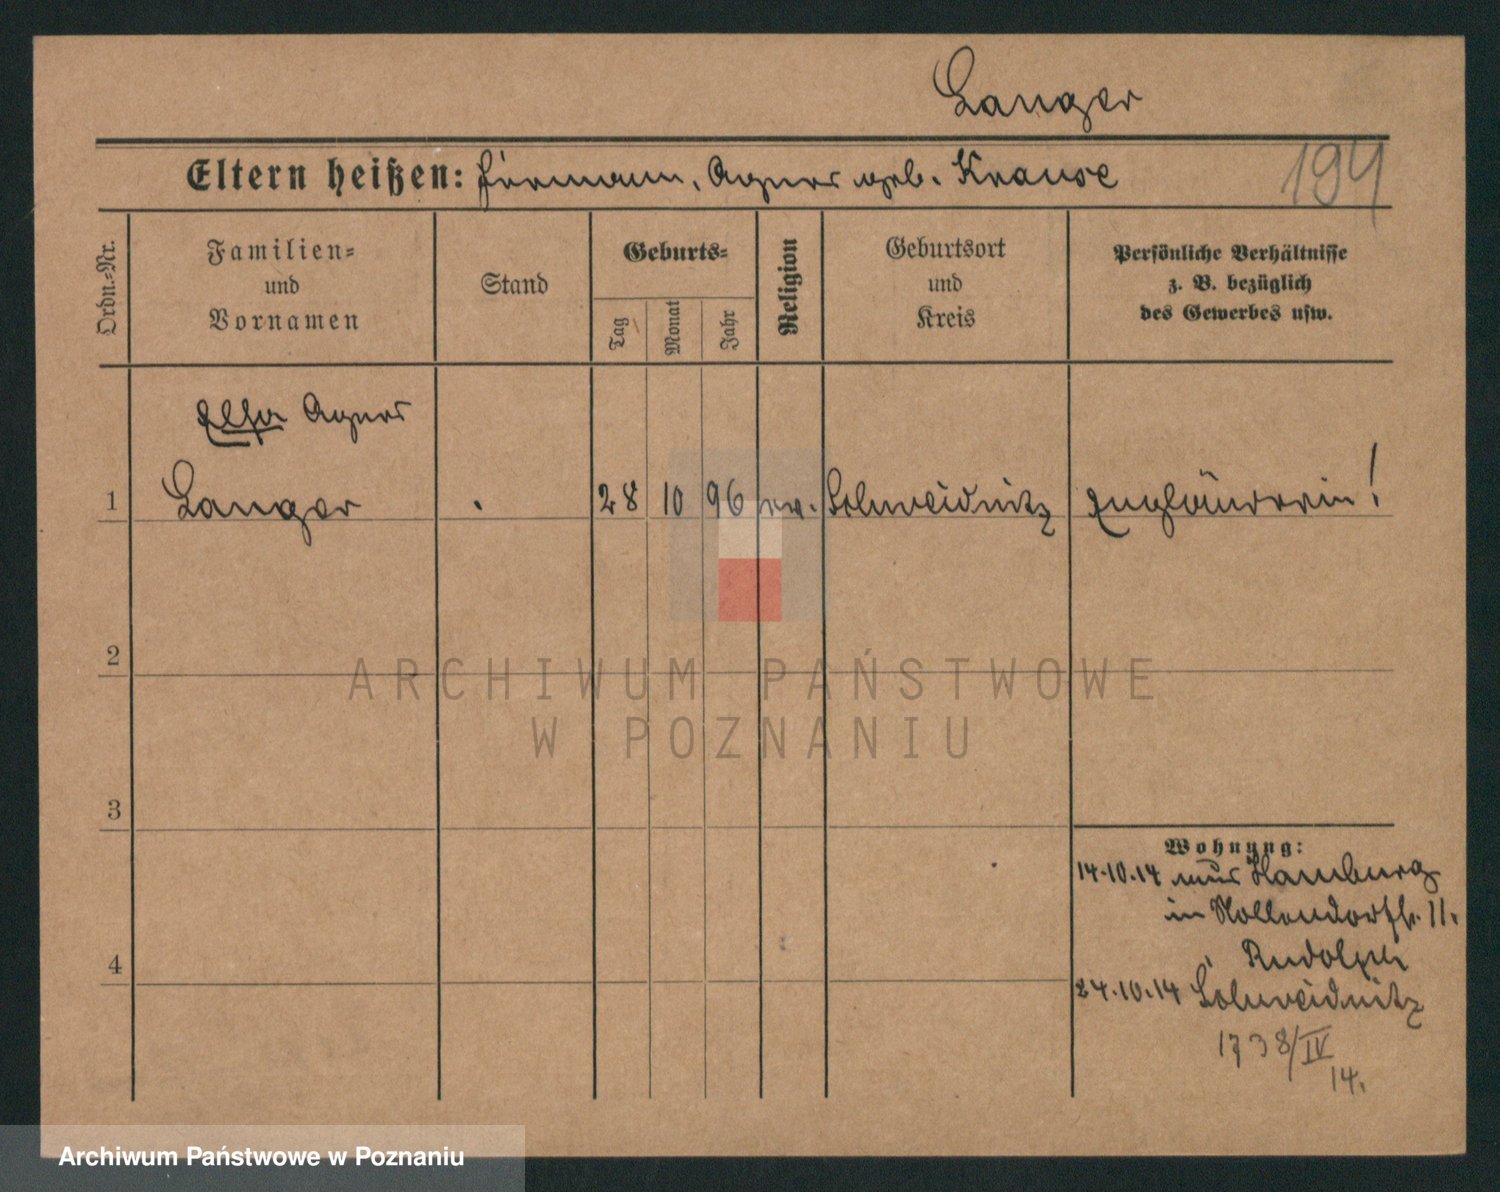 Langer
Eltern heißen: Hermann, Agnes geb. Krause
194
Ordn.-Nr.
Familien-
und
Vornamen
Stand
Geburts-
Tag
Monat
Jahr
Religion
Geburtsort
und
Kreis
Persönliche Verhältnisse
z. B. bezüglich
des Gewerbes usw.
Elsa Agnes
1 Langer 28 10 96 ev. Schweidnitz Engländerin!
2
3
4
Wohnung:
14.10.14 aus Hamburg
in Nollendorfstr. 11.
Rudolph
24.10.14 Schweidnitz
1738/IV
14.
ARCHIWUM PAŃSTWOWE
W POZNANIU
Archiwum Państwowe w Poznaniu